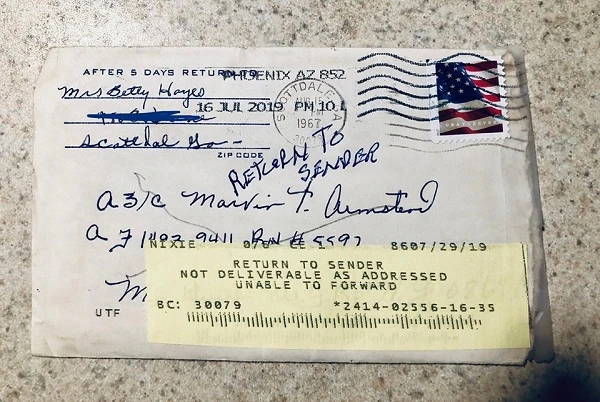 AFTER 5 DAYS RETURN TO
PHOENIX AZ 852
Mrs Betty Hayes
16 JUL 2019 PM 10 L
SCOTTDALE, GA
PM
1967
Scottdal Ga
ZIP CODE
RETURN TO
SENDER
A3/C Marvin
A F 9411 5597
NIXIE 8607/29/19
RETURN TO SENDER
NOT DELIVERABLE AS ADDRESSED
UNABLE TO FORWARD
BC: 30079 *2414-02556-16-35
UTF